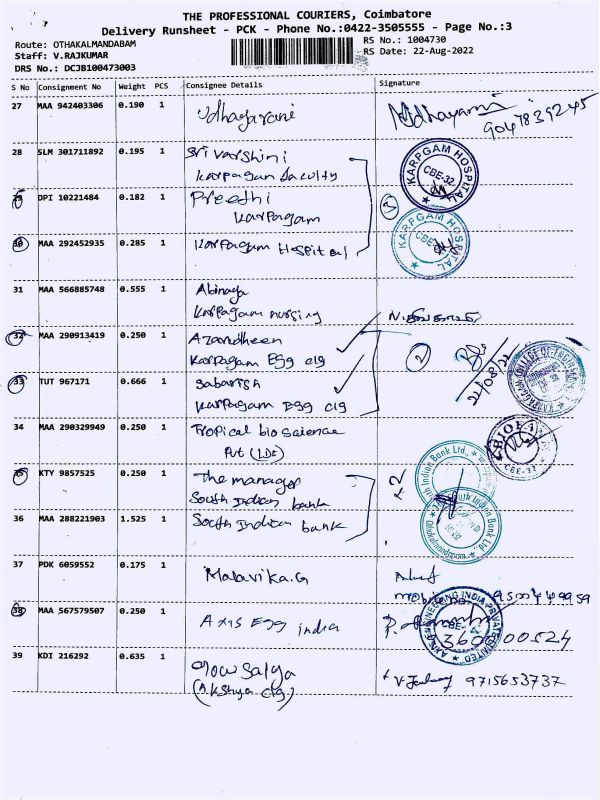 THE PROFESSIONAL COURIERS, Coimbatore
Delivery Runsheet - PCK - Phone No.:0422-3505555 - Page No.:3
Route: OTHAKALMANDABAM
RS No.: 1004730
Staff: V.RAJKUMAR
RS Date: 22-Aug-2022
DRS No.: DCJB100473003
S No Consignment No Weight PCS Consignee Details Signature
27 MAA 942403306 0.190 1 Udhayarani
9047839245
28 SLM 301711892 0.195 1 Sri Varshini
Karpagam faculty
KARPGAM HOSPITAL
CBE-32
29 DPI 10221484 0.182 1 Preethi
Karpagam
3
30 MAA 292452935 0.285 1 Karpagam Hospital
KARPGAM HOSPITAL
31 MAA 566885748 0.555 1 Abinaya
Karpagam nursing
32 MAA 290913419 0.250 1
Karpagam Egg clg
2
22/08/22
33 TUT 967171 0.666 1 Sabarish
Karpagam Egg clg
34 MAA 290329949 0.250 1 Tropical bio science
Pvt (Ltd)
CBE-32
35 KTY 9857525 0.250 1 The manager
South Indian bank
South Indian Bank Ltd.,
36 MAA 288221903 1.525 1 South Indian bank
South Indian Bank Ltd.,
Othakalmandapam
37 PDK 6059552 0.175 1 Malavika.G
38 MAA 567579507 0.250 1 Axis Egg india
ENGINEERING INDIA PRIVATE LIMITED
39 KDI 216292 0.635 1
(Akshya clg)
9715653737